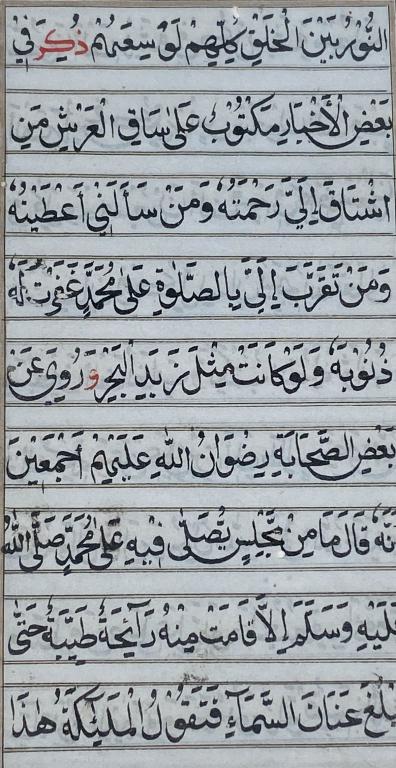 النُّوْرُ بَيْنَ الْخَلْقِ كُلِّهِمْ لَوَسِعَهُمْ ذُكِرَ فِيْ
بَعْضِ الْأَخْبَارِ مَكْتُوْبٌ عَلٰى سَاقِ الْعَرْشِ مَنِ
اشْتَاقَ إِلَيَّ رَحِمْتُهُ وَمَنْ سَأَلَنِيْ أَعْطَيْتُهُ
وَمَنْ تَقَرَّبَ إِلَيَّ بِالصَّلٰوةِ عَلٰى مُحَمَّدٍ غَفَرْتُ لَهُ
ذُنُوْبَهُ وَلَوْ كَانَتْ مِثْلَ زَبَدِ الْبَحْرِ وَرُوِيَ عَنْ
بَعْضِ الصَّحَابَةِ رِضْوَانُ اللّٰهِ عَلَيْهِمْ أَجْمَعِيْنَ
أَنَّهُ قَالَ مَا مِنْ مَجْلِسٍ يُصَلّٰى فِيْهِ عَلٰى مُحَمَّدٍ صَلَّى اللّٰهُ
عَلَيْهِ وَسَلَّمَ إِلَّا قَامَتْ مِنْهُ رَآئِحَةٌ طَيِّبَةٌ حَتّٰى
تَبْلُغَ عَنَانَ السَّمَآءِ فَتَقُوْلُ الْمَلٰئِكَةُ هٰذَا